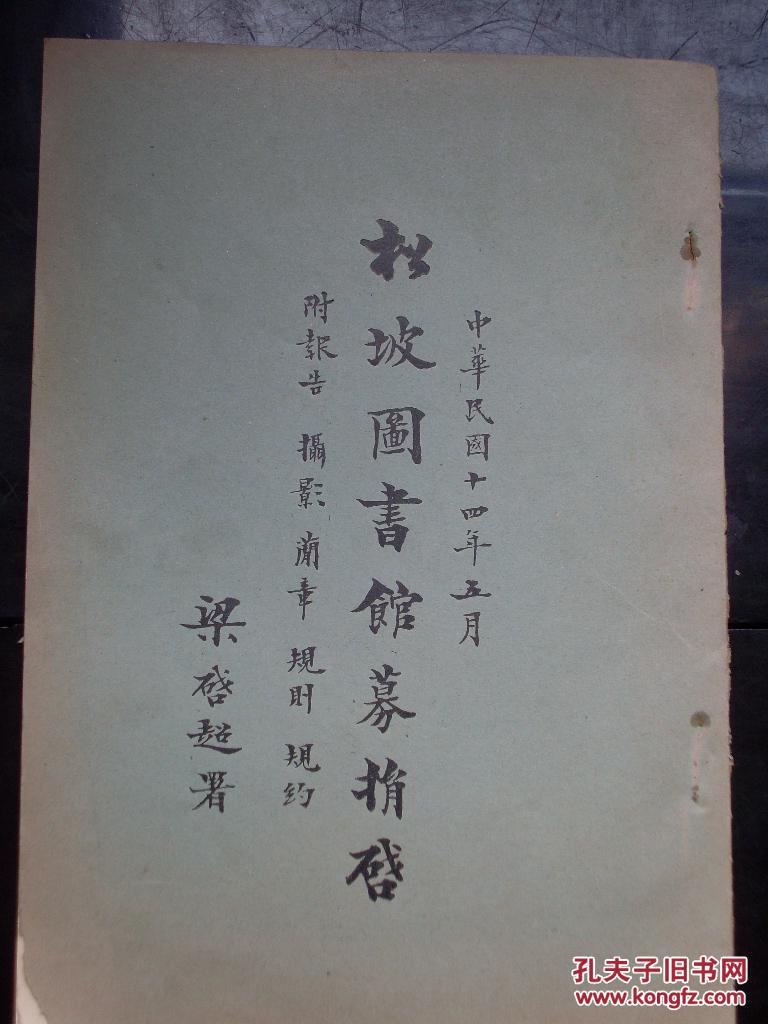 中華民國十四年五月
松坡圖書館募捐啓
附報告 攝影 簡章 規則 規約
梁啓超署
孔夫子旧书网
www.kongfz.com